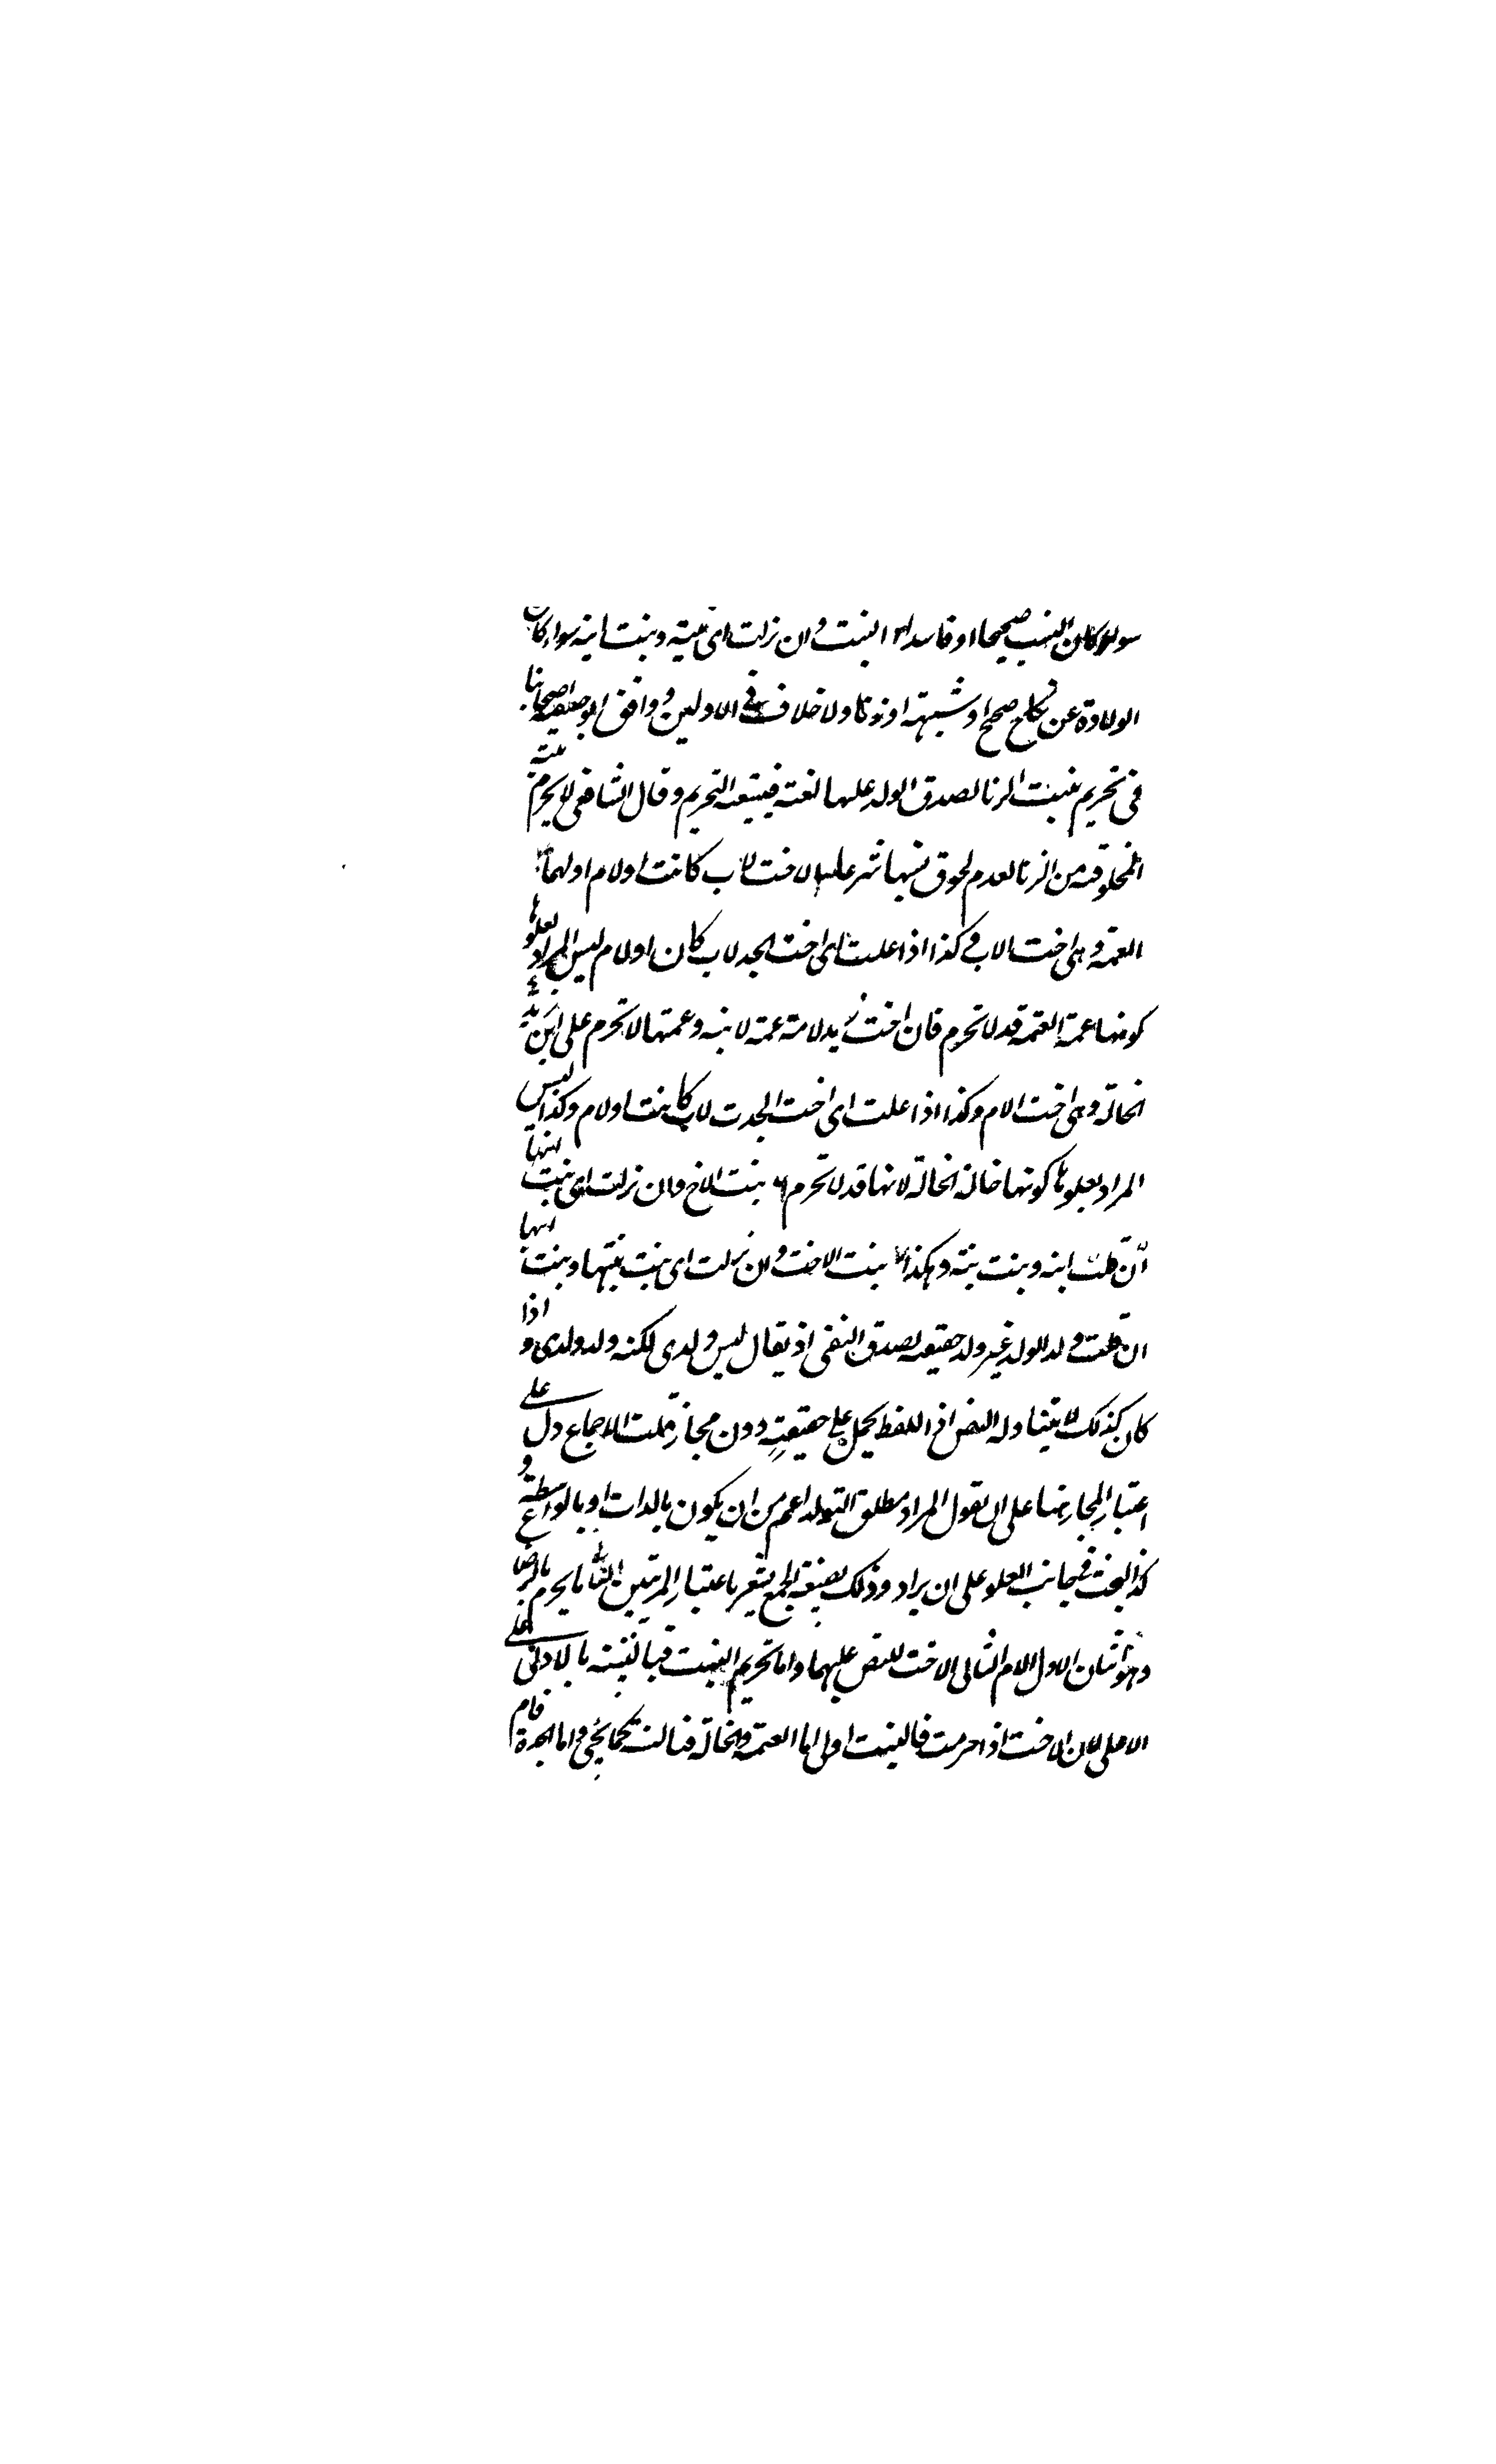 سواء كان النسب صحيحا او فاسدا ٢ البنت و ان نزلت اى بنته و بنت ابنه سواء كان
الولادة عن نكاح صحيح او شبهة او زنا ولا خلاف فى الاولين و وافق ابو حنيفة اصحابنا
فى تحريم بنت الزنا لصدق الولد عليها لغة فيتبعه التحريم و قال الشافعى لا يحرم بنته
المخلوقة من الزنا لعدم لحوق نسبها شرعا الاخت لاب كانت او لام او لهما
العمة و هى اخت الاب و كذا اذا علت اى اخت الجد لاب كان او لام ليس المراد بعلوها
كونها عمة العمة قد لا تحرم فان اخت زيد لامه عمة لابنه و عمتها لا تحرم على ابن زيد
الخالة و هى اخت الام و كذا اذا علت اى اخت الجدة لاب كانت او لام و كذا ليس
المراد بعلوها كونها خالة الخالة لانها قد لا تحرم بنت الاخ و ان نزلت اى بنت ابنها
بنت ابنه و بنت بنته و هكذا بنت الاخت و ان نزلت اى بنت بنتها و بنت ابنها
ان قلت ولد الولد غير ولد حقيقة لصدق النفى اذ يقال ليس ولدى لكنه ولد ولدى و اذا
كان كذلك لا يتناوله النص اذ اللفظ يحمل على حقيقته دون مجازه قلت الاجماع دل على
اعتبار المجاز هنا على ان نقول المراد مطلق التولد اعم من ان يكون بالذات او بالواسطة و
كذا البحث فى جانب العلو على ان يراد و ذلك بصيغة الجمع يشعر باعتبار المرتبتين الثانى ما يحرم بالرضاع
و هو اثنان الاول الام الثانى الاخت للنص عليهما و اما تحريم البنت فبالتنبيه بالادنى على
الاعلى لان الاخت اذا حرمت فالبنت اولى اما العمة و الخالة فبالسنة كما يجئ و اما الجدة فام